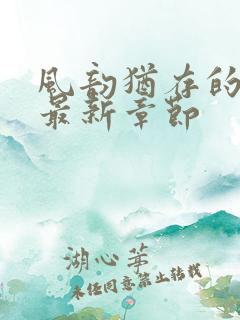 风韵犹存的
最新章节
湖心茅
未经同意禁止转载